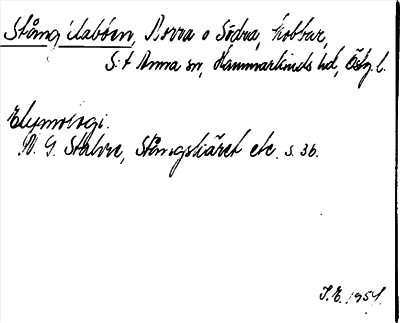 Stångdaböen, Norra o Södra, kobbar,
S:t Anna sn, Hammarkinds hd, Östg. l.
Etymologi.
N. G. Stahre, Stångskäret etc s. 36.
I. E. 1954.